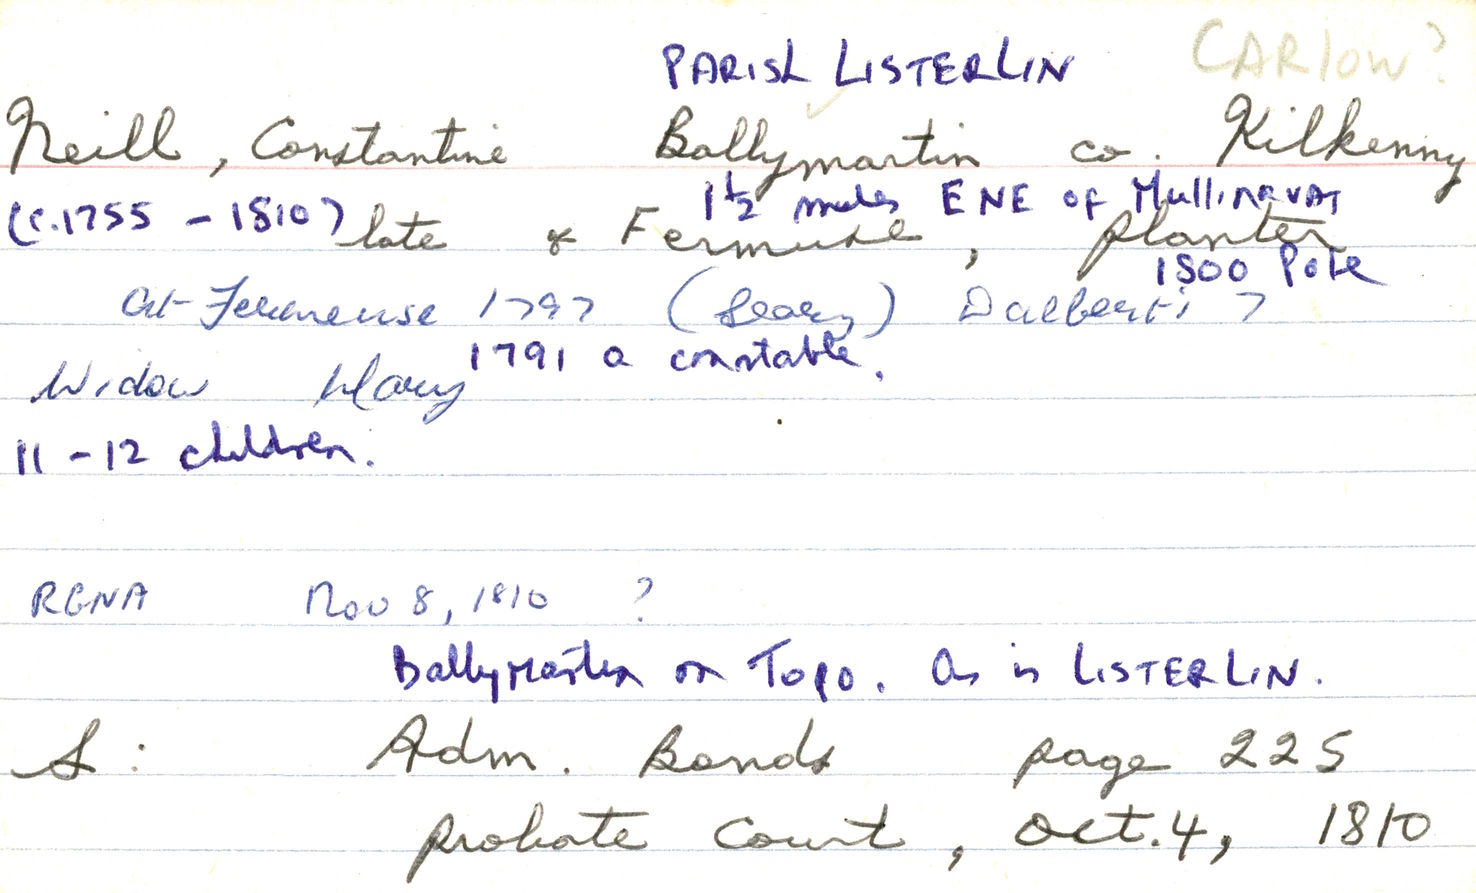 PARISH LISTERLIN CARLOW?
Neill, Constantine Ballymartin co. Kilkenny
(c.1755 - 1810) 1½ miles ENE of Mullinavat
late of Fermuse, planter
1800 Pole
at Fermeuse 1797 (Leary) Dalberti 7
1791 a constable.
Widow Mary
11-12 children.
RGNA Nov 8, 1810 ?
Ballymartin on Topo. As is LISTERLIN.
S: Adm. Bonds page 225
probate Court, Oct. 4, 1810